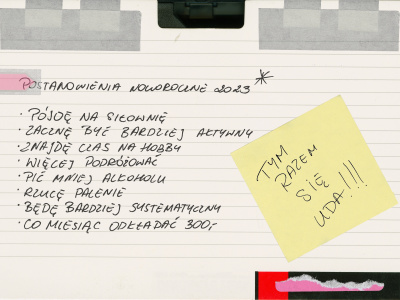 POSTANOWIENIA NOWOROCZNE 2023 *
· PÓJDĘ NA SIŁOWNIĘ
· ZACZNĘ BYĆ BARDZIEJ AKTYWNY
· ZNAJDĘ CZAS NA HOBBY
· WIĘCEJ PODRÓŻOWAĆ
· PIĆ MNIEJ ALKOHOLU
· RZUCĘ PALENIE
· BĘDĘ BARDZIEJ SYSTEMATYCZNY
· CO MIESIĄC ODKŁADAĆ 300,-
TYM
RAZEM
SIĘ
UDA!!!